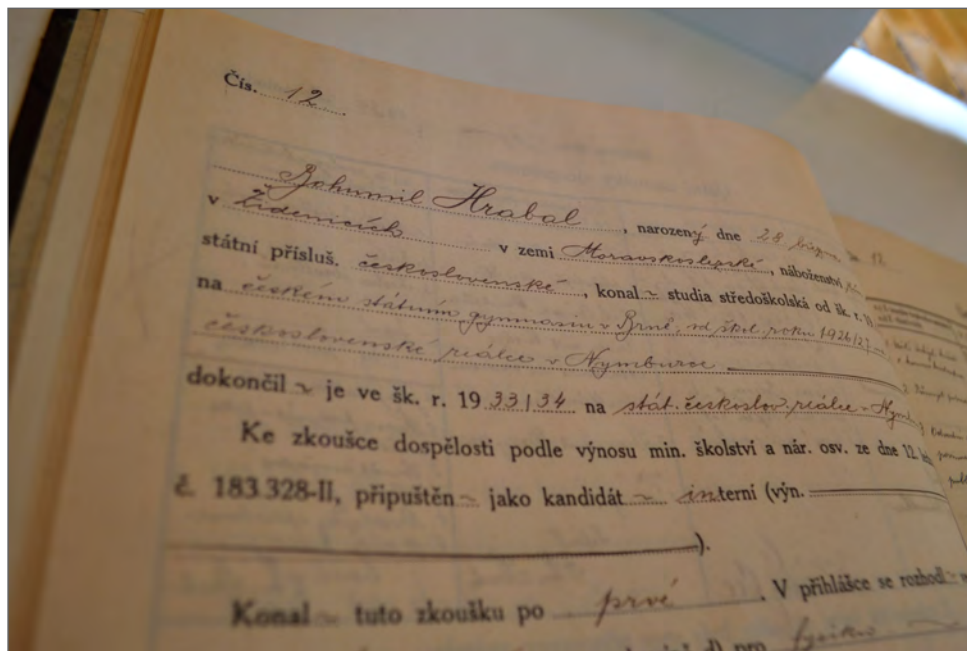 Čís. 12
Bohumil Hrabal, narozený dne 28 března
v Židenicích v zemi Moravskoslezské, náboženství
státní přísluš. československé, konal ~ studia středoškolská od šk. r. 19
na českém státním gymnasiu v Brně, od škol. roku 1926/27
československé reálce v Nymburce
dokončil ~ je ve šk. r. 19 33/34 na stát. českoslov. reálce v
Ke zkoušce dospělosti podle výnosu min. školství a nár. osv. ze dne 12.
č. 183.328-II, připuštěn ~ jako kandidát ~ interní (výn.
).
Konal ~ tuto zkoušku po prvé. V přihlášce se rozhodl ~
pro fysiku ~